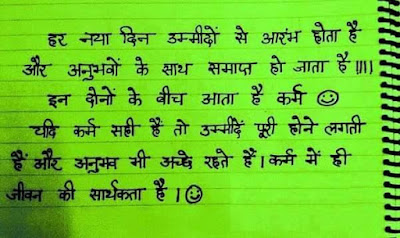 हर नया दिन उम्मीदों से आरंभ होता है
और अनुभवों के साथ समाप्त हो जाता है ||||
इन दोनों के बीच आता है कर्म ☺
यदि कर्म सही है तो उम्मीदें पूरी होने लगती
हैं और अनुभव भी अच्छे रहते हैं। कर्म में ही
जीवन की सार्थकता है । ☺